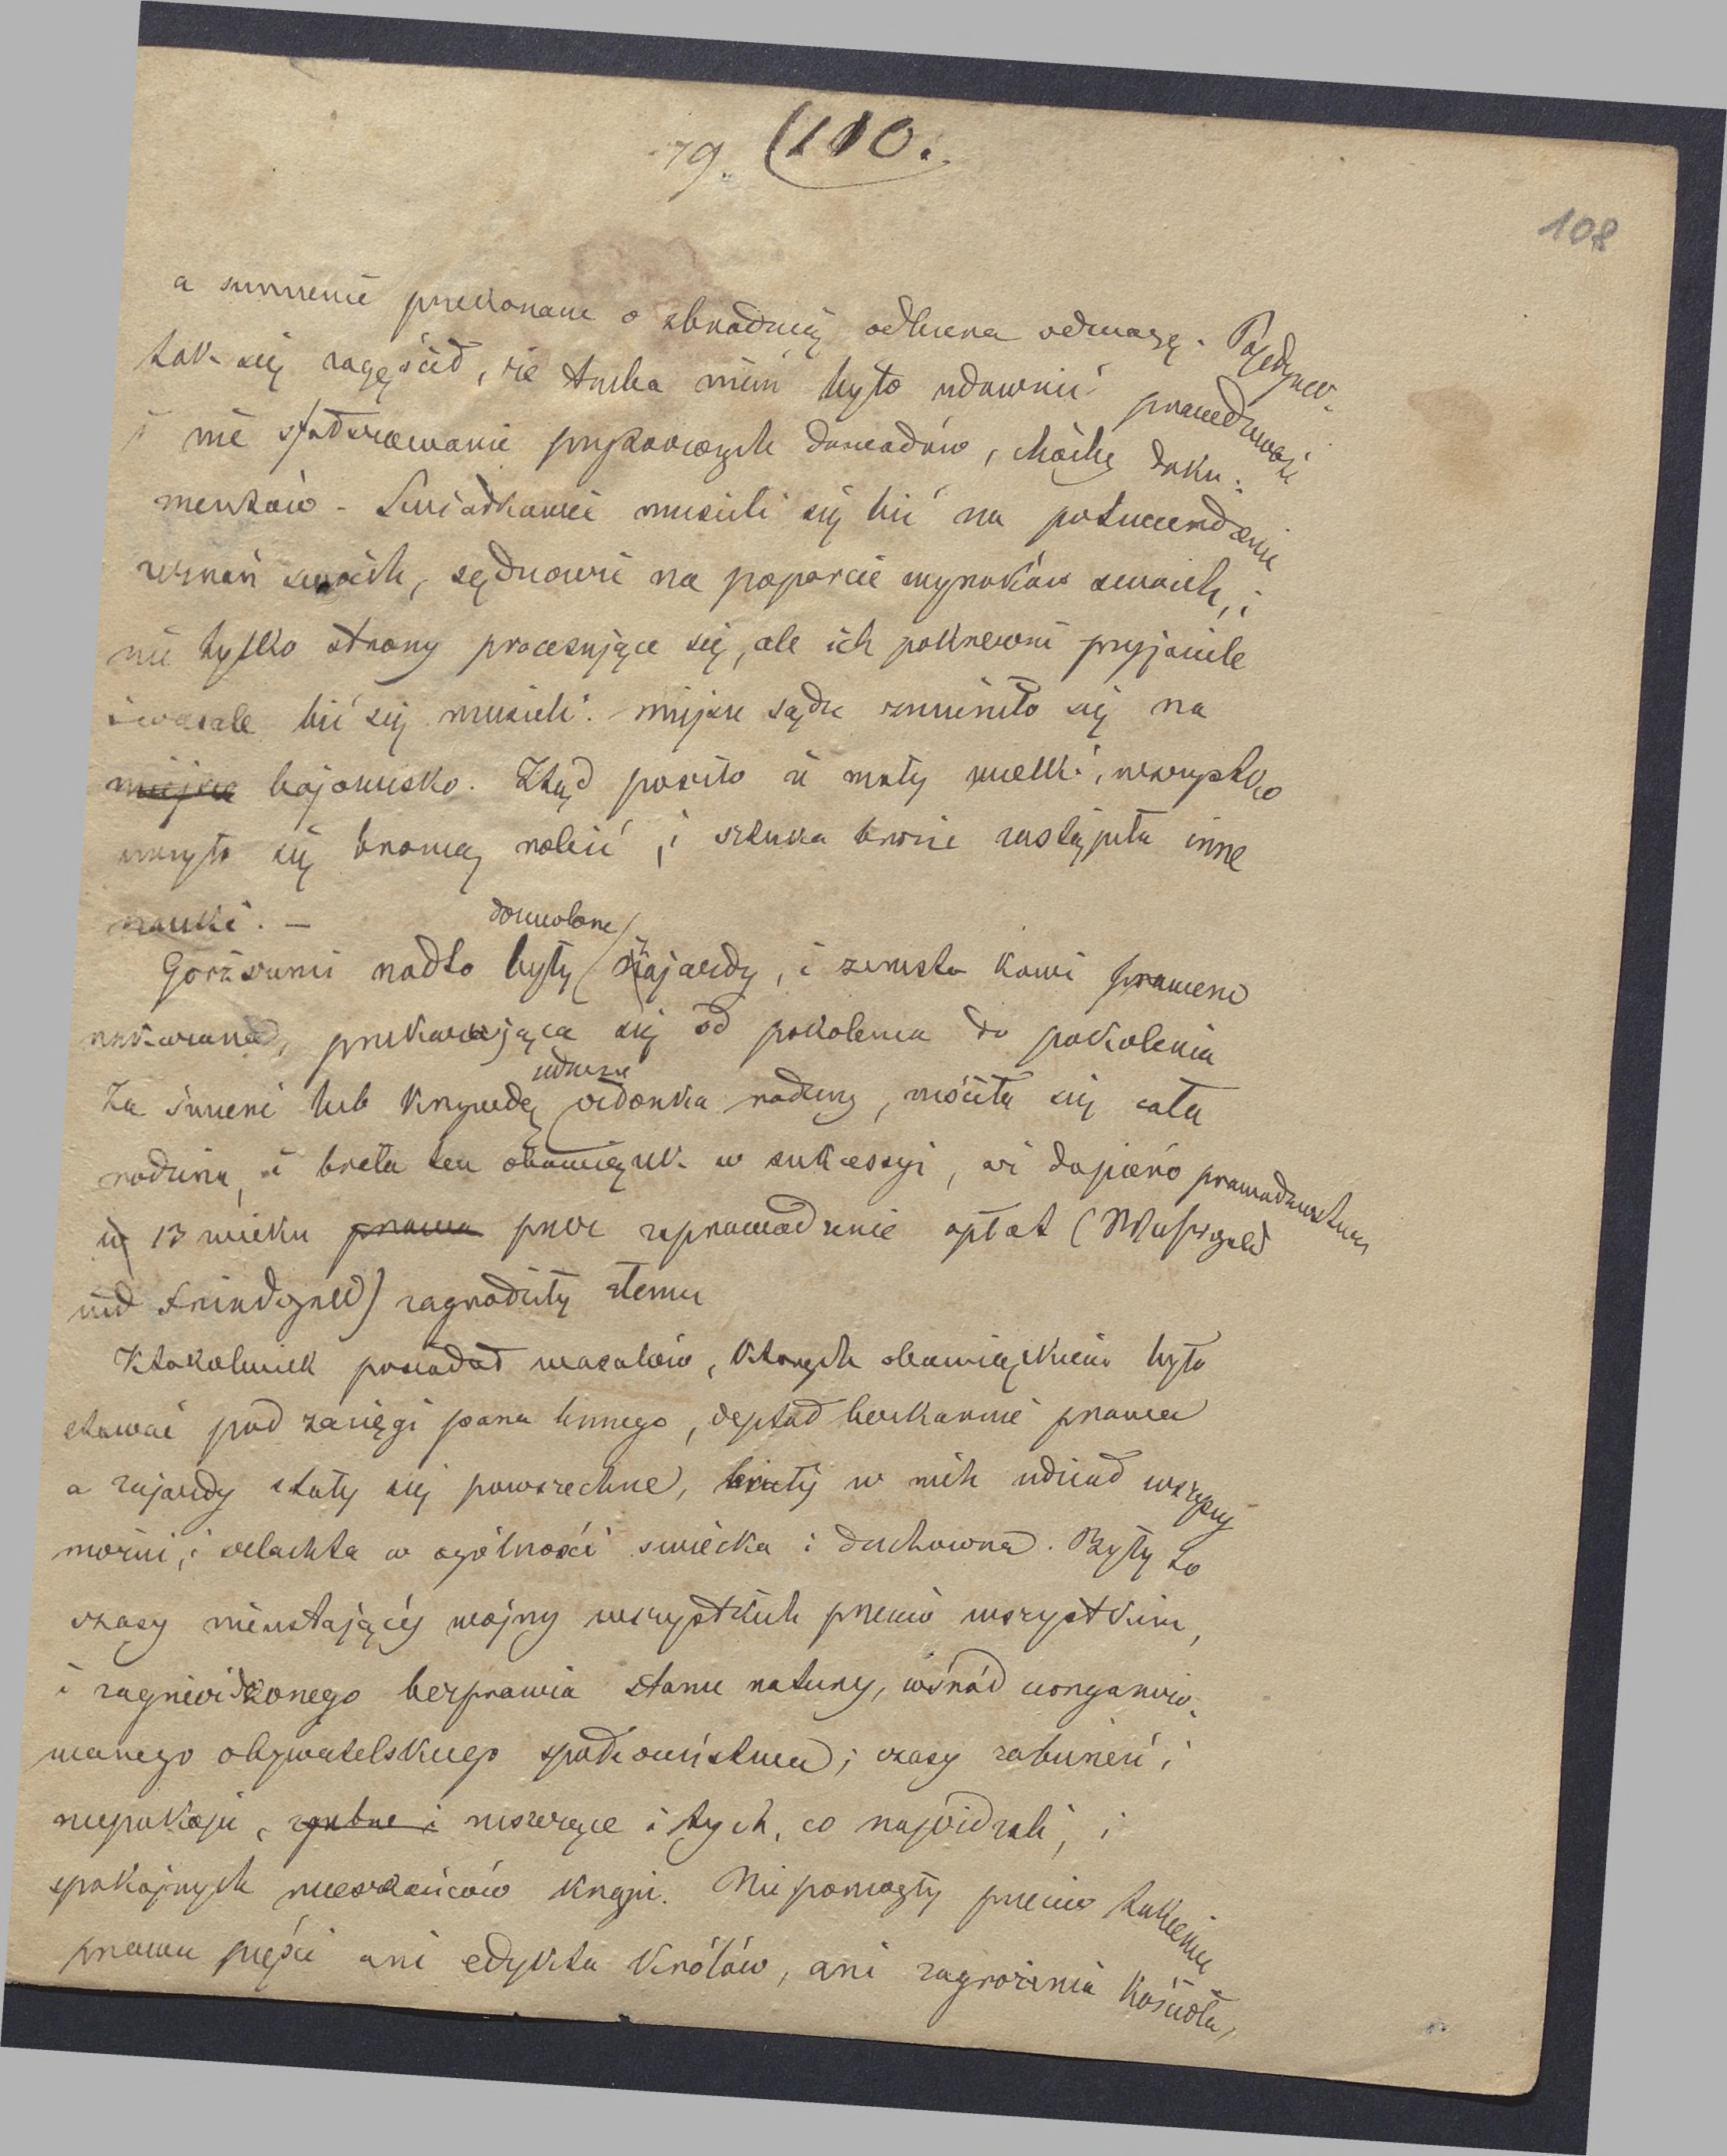 79. 110.
108
a sumienie przekonane o zbrodnię odbiera odwagę. Pojedynek
tak się zagęścił, że trzeba nim było udawnić prawdziwość
i nie sfałszowanie przytoczonych dowodów, choćby doku:
mentów - Swiadkowie musieli się bić na potwierdzenie
zeznań swoich, sędziowie na poparcie wyroków swoich, i
nie tylko strony procesujące się, ale ich pokrewni przyjaciele
i wasale bić się musieli. miejsce sądu zmieniło się na
miejsce bojowisko. Ztąd poszło iż mały wielki, wszystko
uczyło się bronią robić, i sztuka broni zastąpiła inne
nauki. -
dozwolone
Gorszemi nadto były zajazdy, i zemsta krwi prawem
nakazana, przekazująca się od pokolenia do pokolenia
Za śmierć lub krzywdę członka rodziny, mściła się cała
rodzina, i brała ten obowiązek w sukcessyi, aż dopiero prawodawstwa
w 13 wieku prawa przez zaprowadzenie opłat (Wehrgeld
und Friedgeld) zagrodziły złemu
Ktokolwiek posiadał wasalów, których obowiązkiem było
stawać pod zaciągi pana lennego, deptał bezkarnie prawa
a zajazdy stały się powszechne, brali w nich udział wszyscy
możni, i szlachta w ogólności swiecka i duchowna. Były to
czasy nieustającéj wojny wszystkich przeciw wszystkim,
i zagnieżdżonego bezprawia stanu natury, wśród uorganizo-
wanego obywatelskiego społeczeństwa; czasy zaburzeń i
niepokoju, zgubne i niszczące i tych, co najeżdżali, i
spokojnych mieszkańców kraju. Nie pomogły przeciw takiemu
prawu pięści ani edykta królów, ani zagrożenia kościoła,